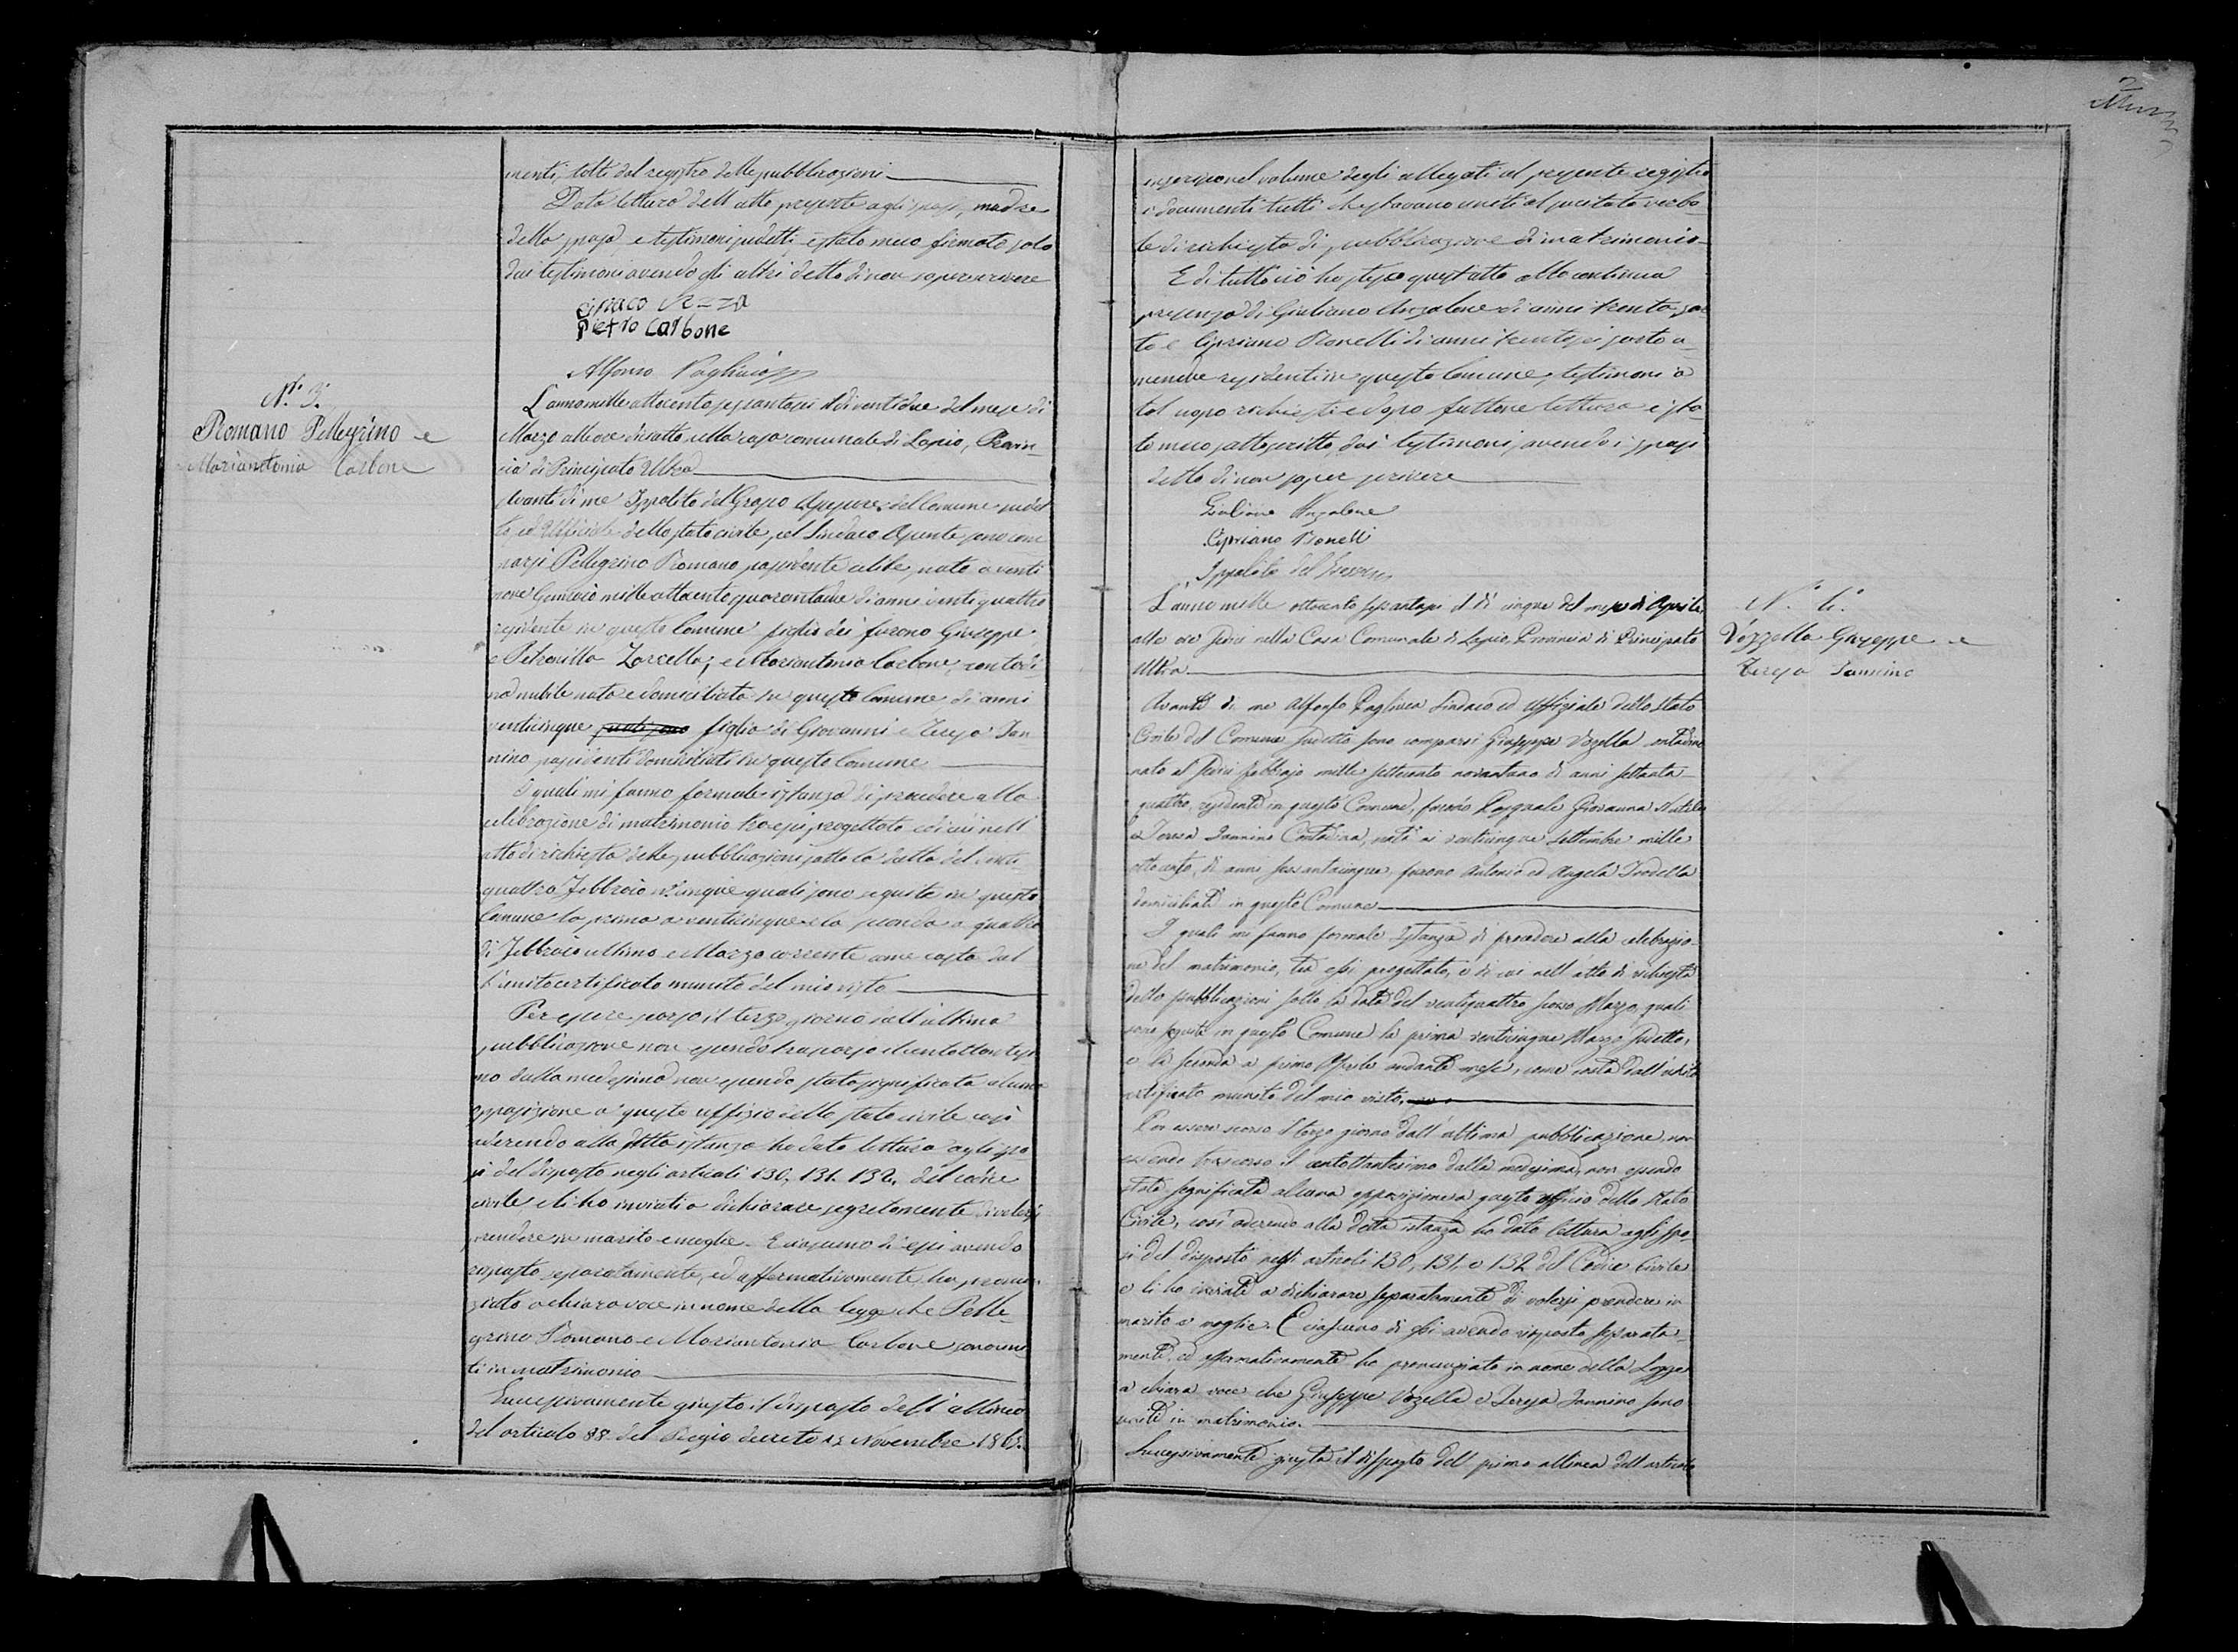 menti, tolti dal registro delle pubblicazioni
Data lettura dell'atto presente agli sposi, madre
della sposa e testimoni sudetti è stato meco firmato solo
dai testimoni avendo gli altri detto di non saper scrivere
Pietro Carbone
Alfonso
N.° 3.°
Romano Pellegrino e
Mariantonia Carbone
L'anno mille ottocento sessantasei il dì ventidue del mese di
Marzo alle ore diciotto nella casa comunale di Lapio, Provin-
cia di Principato Ultra
Avanti di me Ippolito del Grosso Assessore del Comune sudet
to ed Uffiziale dello stato civile, pel Sindaco Assente sono com
parsi Pellegrino Romano possidente celibe, nato a venti
nove Gennaio mille ottocento quarantadue di anni ventiquattro
residente in questo Comune figlio dei furono Giuseppe
e Petronilla Zarrella; e Mariantonia Carbone, contadi
na nubile nata e domiciliata in questo Comune, di anni
venticinque figlia di Giovanni e Teresa Ian
nino possidenti domiciliati in questo Comune
I quali mi fanno formale istanza di procedere alla
celebrazione di matrimonio tra essi progettato e di cui nell'
atto di richiesta delle pubblicazioni sotto la data del venti
quattro Febbraio quali sono seguite in questo
Comune la prima a venticinque e la seconda a quattro
di Febbraio ultimo e Marzo corrente come costa dal
l'unito certificato munito del mio visto
Per essere scorso il terzo giorno dall'ultima
pubblicazione non essendo trascorso il centottantesi
mo dalla medesima non essendo stata significata alcuna
opposizione a questo uffizio dello stato civile così
aderendo alla detta istanza ho dato lettura agli spo
si del disposto negli articoli 130, 131. 132, del codice
civile e li ho invitati a dichiarare segretamente di volersi
prendere in marito e moglie. E ciascuno di essi avendo
risposto separatamente, ed affermativamente ho pronun
ziato a chiara voce in nome della legge che Pelle-
grino Romano e Mariantonia Carbone sono uni
ti in matrimonio
Successivamente giusto il disposto dell' allinea
del articolo 88 del Regio decreto 15 Novembre 1865.
inserisco nel volume degli allegati al presente registro
i documenti tutti che stavano uniti al precitato verba-
le di richiesta di pubblicazione di matrimonio
E di tutto ciò ho steso quest'atto alla continua
presenza di Giuliano Anzalone di anni trenta, sar
to e Cipriano Ronelli di anni trentasei sarto a-
mendue residenti in questo Comune, testimoni a
tal uopo richiesti e dopo fattone lettura è sta-
to meco sottoscritto dai testimoni, avendo i sposi
detto di non saper scrivere
Giuliano Anzalone
Cipriano Ronelli
Ippolito del Grosso
N.° 4.°
Vozzella Giuseppe e
Teresa Iannino
L'anno mille ottocento sessantasei il dì cinque del mese di Aprile
alle ore sedici nella Casa Comunale di Lapio, Provincia di Principato
Ultra
Avanti di me Alfonso Pagliuca Sindaco ed Uffiziale dello Stato
Civile del Comune sudetto sono comparsi Giuseppe Vozella contadino
nato al sedici Febbrajo mille settecento novantuno di anni settanta
quattro, residente in questo Comune, furono Pasquale Giovanna
e Teresa Iannino Contadina, nata ai venticinque Settembre mille
ottocento, di anni sessantacinque, furono Antonio ed Angela
domiciliati in questo Comune
I quali mi fanno formale istanza di procedere alla celebrazio-
ne del matrimonio, tra essi progettato, e di cui nell'atto di richiesta
delle pubblicazioni sotto la data del ventiquattro scorso Marzo, quali
sono seguite in questo Comune la prima venticinque Marzo sudetto,
e la seconda a primo Aprile andante mese, come costa dall'unito
certificato munito del mio visto.
Per essere scorso il terzo giorno dall'ultima pubblicazione, non
essendo trascorso il centottantesimo dalla medesima, non essendo
stata significata alcuna opposizione a questo ufficio dello Stato
Civile, così aderendo alla detta istanza ho dato lettura agli spo-
si del disposto negli articoli 130, 131 e 132 del Codice Civile
e li ho invitati a dichiarare separatamente di volersi prendere in
marito e moglie. E ciascuno di essi avendo risposto separata-
mente, ed affermativamente ho pronunziato in nome della Legge
a chiara voce che Giuseppe Vozella e Teresa Iannino sono
uniti in matrimonio.
Successivamente giusta il disposto del primo allinea dell'articolo